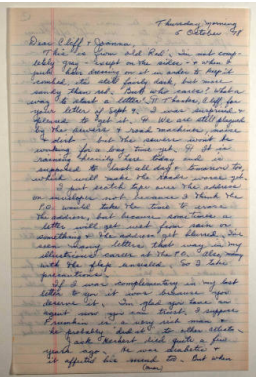 Thursday, morning
5 October '78
Dear Cliff & Joanna,
This is from old Rob. I'm not comp-
letely gray - except on the sides - & when I
put hair dressing on it in order to keep it
combed it's still fairly dark, but more
sandy than red. But who cares? What a
way to start a letter! Thanks, Cliff, for
your letter of Sept. I was surprised &
pleased to get it. We are still plagued
by the sewers & road machines, noise
& dirt - but the sewers won't be
working for a long time yet. It is
raining steadily here today and is
supposed to last all day & tomorrow too,
which will make the roads worse yet.
I put scotch tape over the address
on envelopes not because I think the
P.O. would take the time to erase
the address, but because sometimes a
letter will get wet from rain or
something & the address get blurred. I've
seen many letters that way in my
illustrious career at the P.O. Also, many
with the flaps unsealed. So I take
precautions.
If I was complimentary in my last
letter to you it was because you
deserve it. I'm glad you have an
agent now you can trust. I suppose
Franklin is a very rich man now.
He probably did it to other clients.
Jack Reichert died quite a few
years ago. He was diabetic &
it affected his mind too. But when
(over)